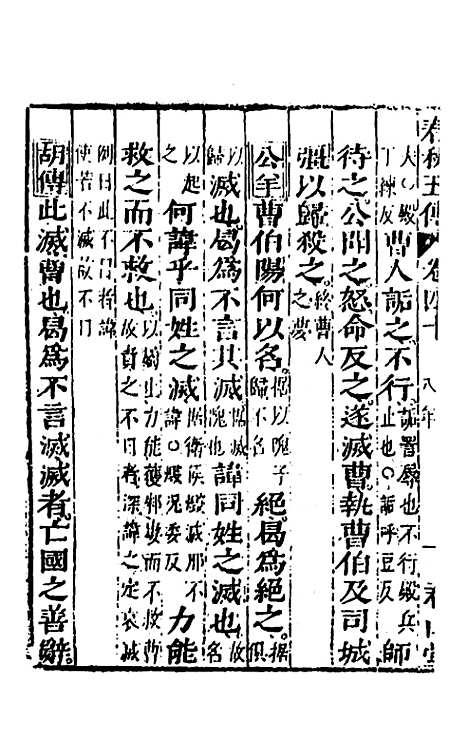 春秋五傳 卷四十 八年 一
大〇殿丁練反曹人詬之不行詬詈辱也不行殿兵止也〇詬呼豆反師
待之公聞之怒命反之遂滅曹執曹伯及司城
彊以歸殺之終曹人之夢
公羊曹伯陽何以名據以隗子歸不名絕曷為絕之據俱
以歸滅也曷為不言其滅據滅隗也諱同姓之滅也故名
以起之何諱乎同姓之滅據衛侯燬滅邢不諱〇燬況委反力能
救之而不救也以屬上力能獲邾婁而不救曹故責之不日者深諱之定哀滅
例日此不日者諱使若不滅故不日
胡傳此滅曹也曷為不言滅滅者亡國之善辭